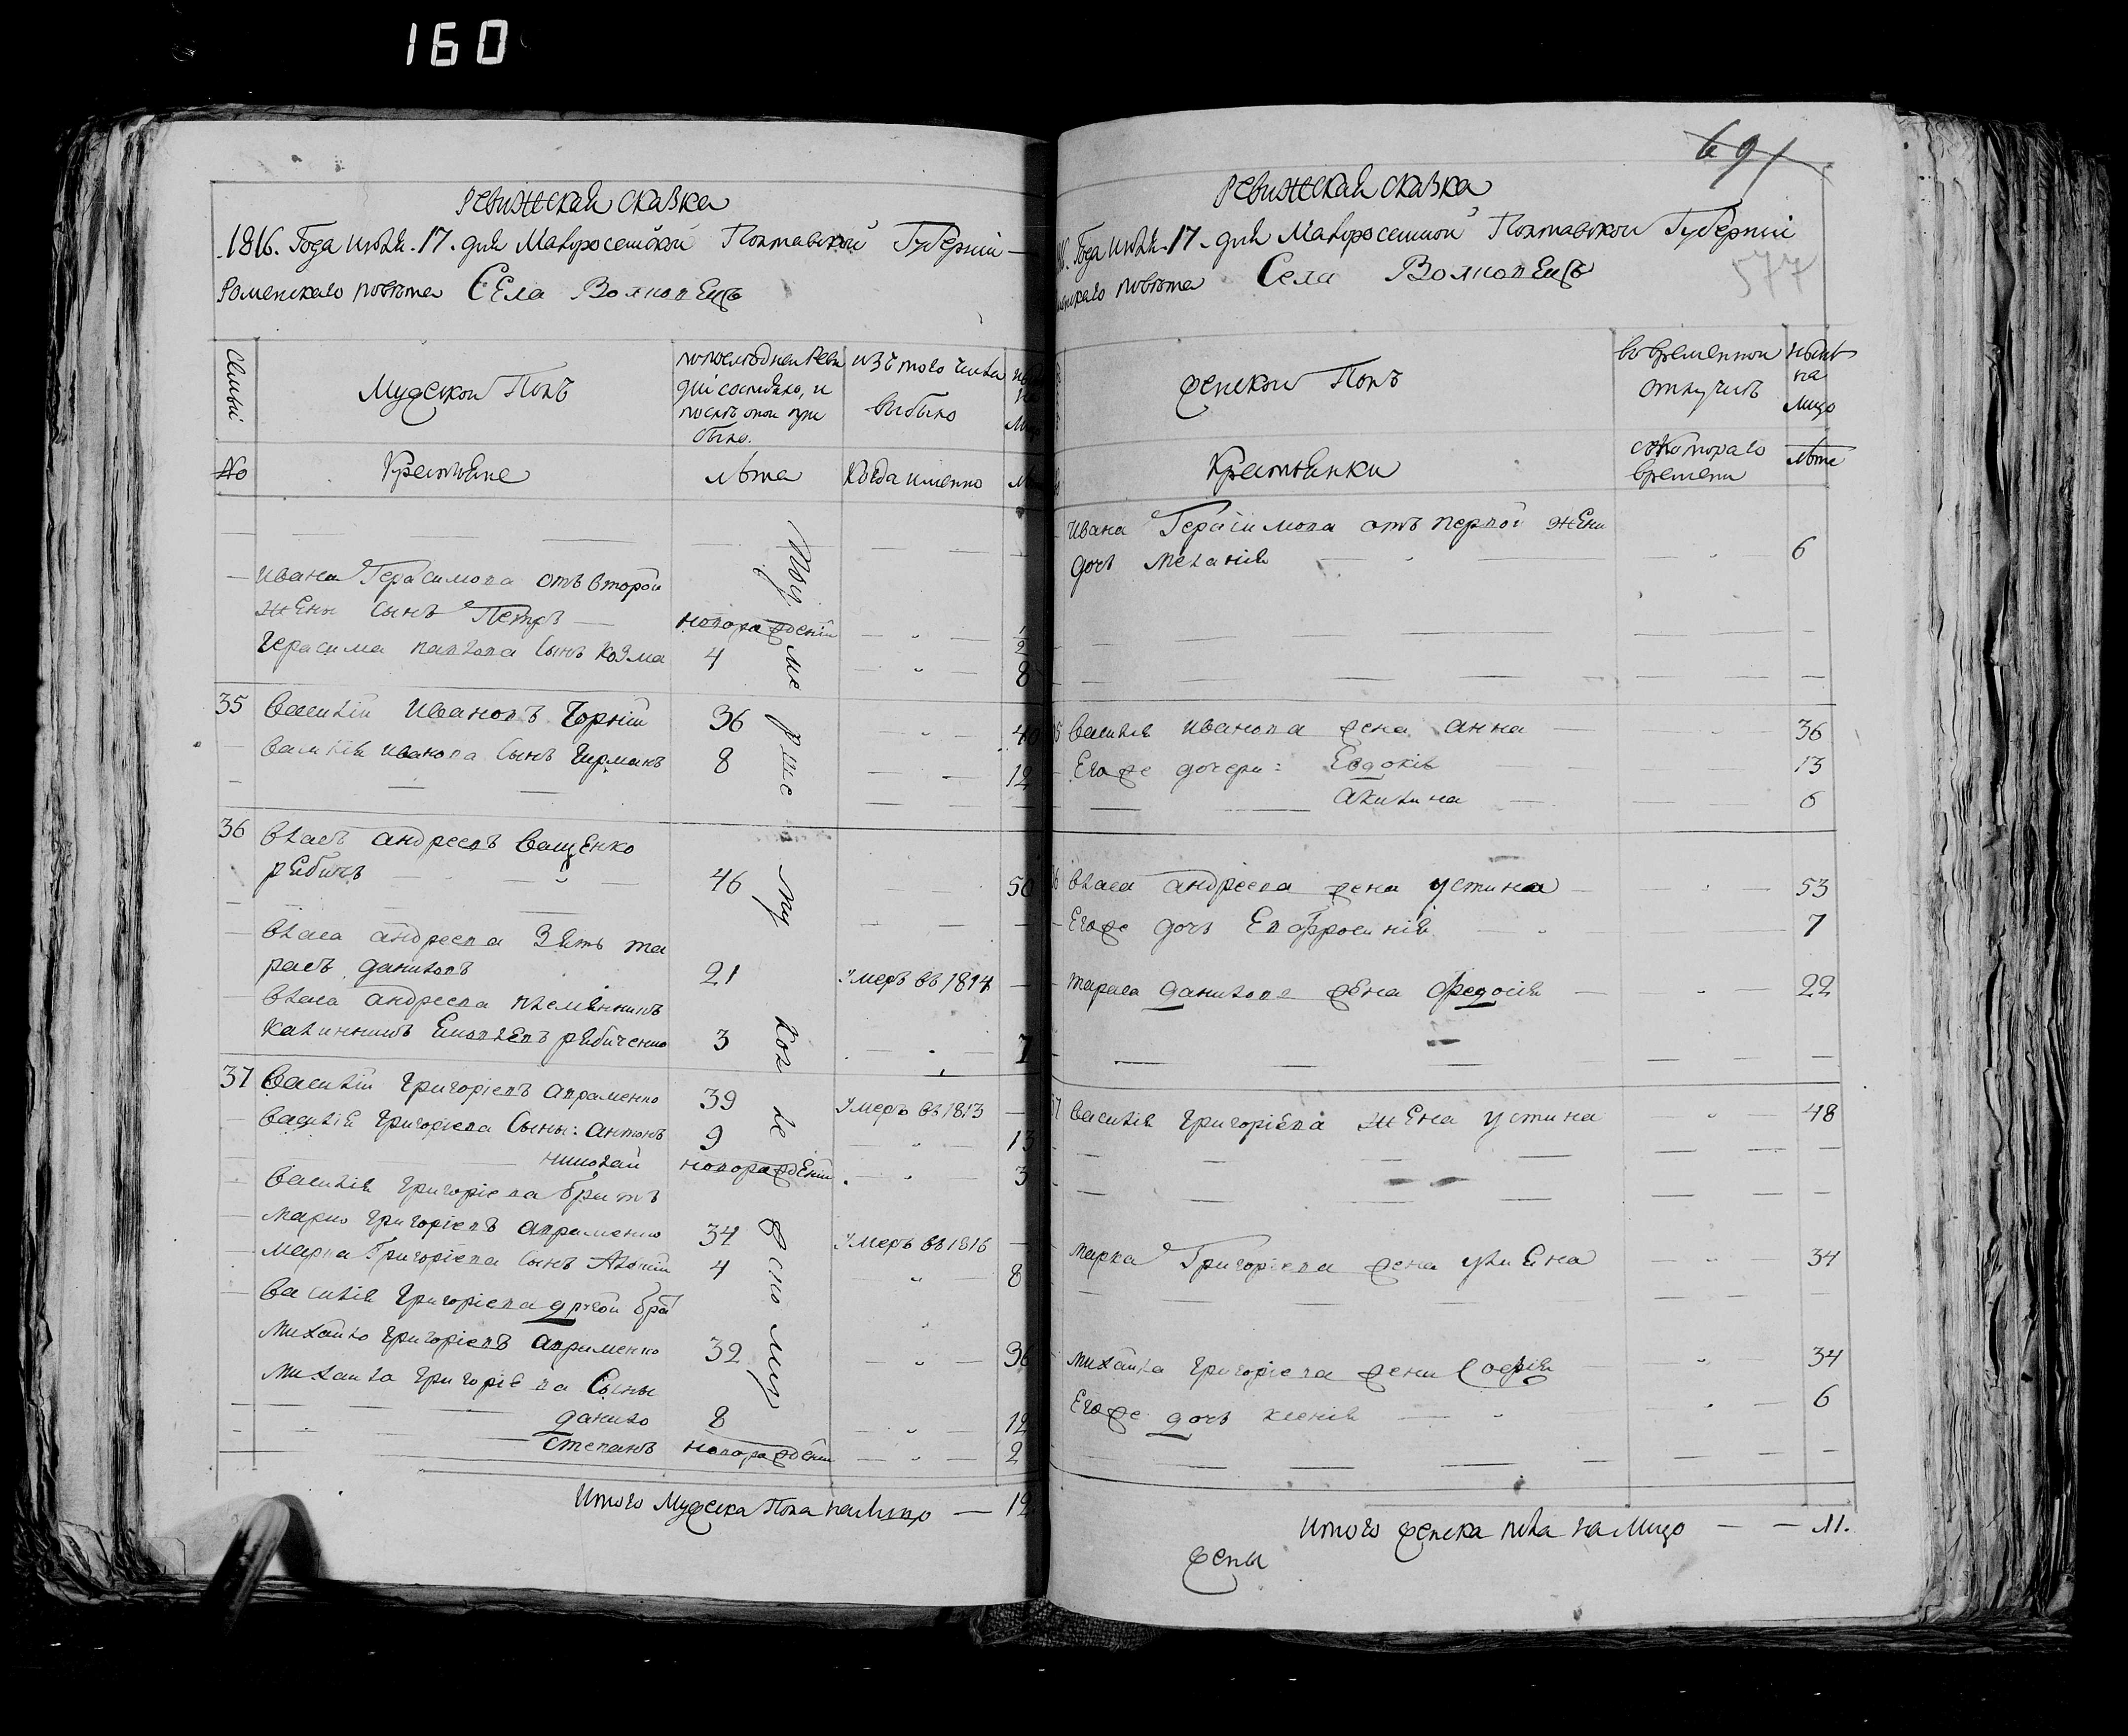 160
Ревижская сказка
1816. Года июля. 17. дня Малоросейской Полтавской Губерніи
Роменскаго повѣта Села Волконецъ
Семьи
Мужескои Полъ
по последнеи Реви
зіи состояло, и
послѣ онои при
было.
изъ того числа
выбыло
№
Крестьяне
лѣта
Когда именно
Ивана Герасимова отъ второй
жены сынъ Петръ
новорожденій
1/2
Герасима павлова сынъ Козма
4
8
35
Василій Ивановъ Чорній
36
40
Василія иванова сынъ Гирманъ
8
12
36
Власъ андреевъ Ващенко
рябичъ
46
50
Власа андреева Зять та
расъ даниловъ
21
умеръ въ 1814
Власа андреева племянникъ
калинникъ рябиченко
3
7
37
Василій григоріевъ авраменко
39
умеръ въ 1813
Василія григоріева Сыны: антонъ
9
13
николай
новорожденій
3
Василія григоріева братъ
марко григоріевъ авраменко
34
умеръ въ 1816
марка Григоріева сынъ
4
8
Василія григоріева другой бра
михайло григоріевъ авраменко
32
36
михайла григоріева Сыны
данило
8
12
степанъ
новорожденій
2
Итого Мужеска Пола налицо — 12
691
577
Ревижская сказка
Года июля. 17. дня Малоросейской Полтавской Губерніи
повѣта Села Волконецъ
женскои Полъ
во временнои
отлучкѣ
нынѣ
на
лицо
Крестьянки
скотораго
времени
лѣта
Ивана Герасимова отъ первой жены
дочь меланія
6
Василія иванова жена анна
36
Егоже дочери: Евдокія
13
акилина
6
Власа андреева жена устина
53
Егоже дочь Евфросинія
7
тараса данилова жена федосія
22
Василія григоріева жена устина
48
марка Григоріева жена улиена
34
михайла григоріева жена софія
34
Егоже дочь ксенія
6
Итого женска пола на лицо — — 11.
жены